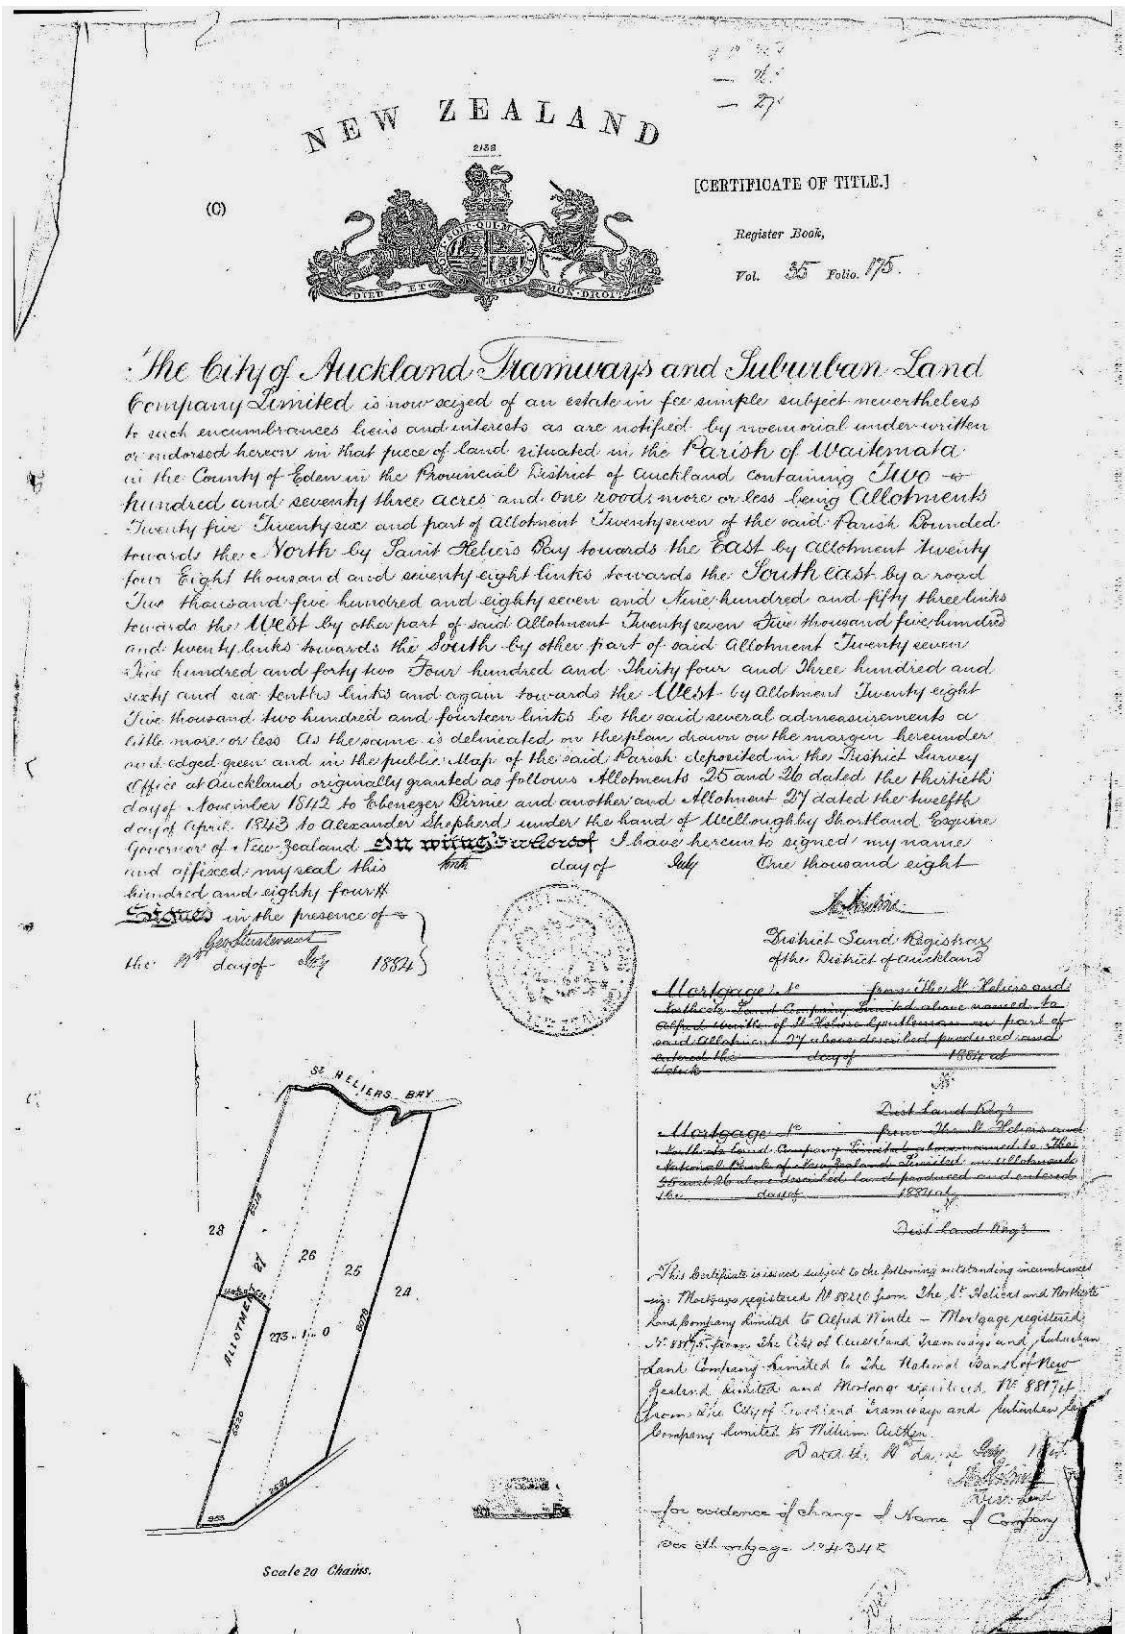 NEW ZEALAND
2138
[CERTIFICATE OF TITLE.]
(C)
Register Book,
Vol. 35 Folio. 175.
HONI SOIT QUI MAL
DIEU ET MON DROIT
The City of Auckland Tramways and Suburban Land
Company Limited is now seized of an estate in fee simple subject nevertheless
to such encumbrances liens and interests as are notified by memorial under written
or endorsed hereon in that piece of land situated in the Parish of Waitemata
in the County of Eden in the Provincial District of Auckland containing Two
hundred and seventy three acres and one rood more or less being Allotments
Twenty five Twenty six and part of Allotment Twenty seven of the said Parish Bounded
towards the North by Saint Heliers Bay towards the East by allotment twenty
four Eight thousand and seventy eight links towards the South east by a road
Two thousand five hundred and eighty seven and Nine hundred and fifty three links
towards the West by other part of said Allotment Twenty seven Five thousand five hundred
and twenty links towards the South by other part of said Allotment Twenty seven
Five hundred and forty two Four hundred and Thirty four and Three hundred and
sixty and six tenths links and again towards the West by Allotment Twenty eight
Five thousand two hundred and fourteen links be the said several admeasurements a
little more or less As the same is delineated on the plan drawn on the margin hereunder
and edged green and in the public Map of the said Parish deposited in the District Survey
Office at Auckland originally granted as follows Allotments 25 and 26 dated the thirtieth
day of November 1842 to Ebenezer Birnie and another and Allotment 27 dated the twelfth
day of April 1843 to Alexander Shepherd under the hand of Willoughby Shortland Esquire
Governor of New Zealand In witness whereof I have hereunto signed my name
and affixed my seal this tenth day of July One thousand eight
hundred and eighty four
Signed in the presence of
the day of July 1884
District Land Registrar
of the District of Auckland
Mortgage No from The St Heliers and
Northcote Land Company Limited above named to
Alfred Wintle of St Heliers Gentleman on part of
said Allotment 27 above described produced and
entered the day of 1884 at
o'clock
Dist land Regr
Mortgage No from The St Heliers and
Northcote Land Company Limited above named to The
National Bank of New Zealand Limited on Allotments
25 and 26 above described land produced and entered
the day of 1884 at
Dist land Regr
This Certificate is issued subject to the following outstanding incumbrances
viz. Mortgage registered No 88210 from The St Heliers and Northcote
Land Company Limited to Alfred Wintle – Mortgage registered
No from The City of Auckland Tramways and Suburban
Land Company Limited to The National Bank of New
Zealand Limited and Mortgage registered No
from The City of Auckland Tramways and Suburban
Company Limited to William Aitken
Dated the day of July
Dist. Land
for evidence of change of Name of Company
see Mortgage No 4342
ST HELIERS BAY
28
27
26
25
24
ALLOTMENT
273..1..0
8078
5520
2587
953
Scale 20 Chains.